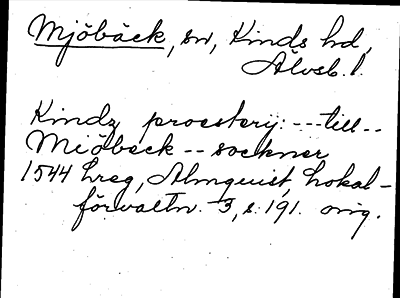 Mjöbäck, sn, Kinds hd,
Älvsb. l.
Kindz proestery: --- till --
Miöbeck -- sockner
1544 hreg, Almquist, Lokal-
förvaltn. 3, s. 191. orig.